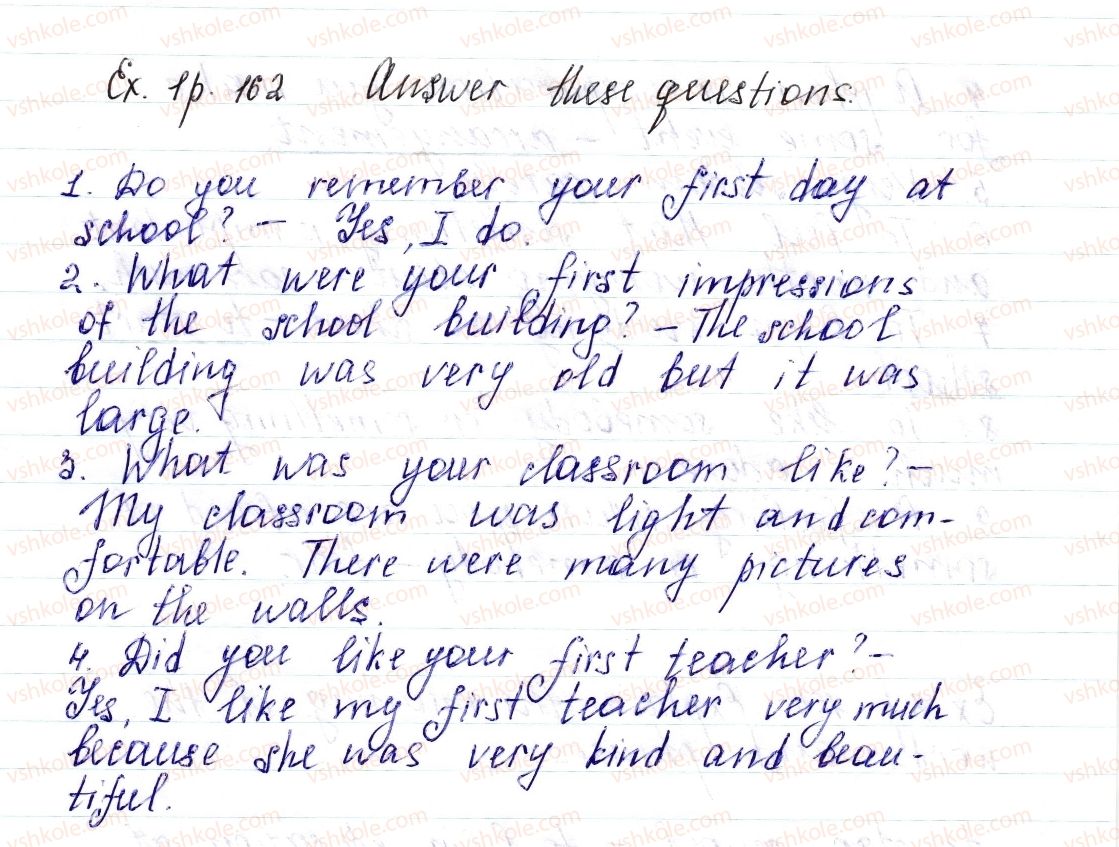 Ex. 1 p. 162 Answer these questions.
1. Do you remember your first day at
school? – Yes, I do.
2. What were your first impressions
of the school building? – The school
building was very old but it was
large.
3. What was your classroom like? –
My classroom was light and com-
fortable. There were many pictures
on the walls.
4. Did you like your first teacher? –
Yes, I like my first teacher very much
because she was very kind and beau-
tiful.